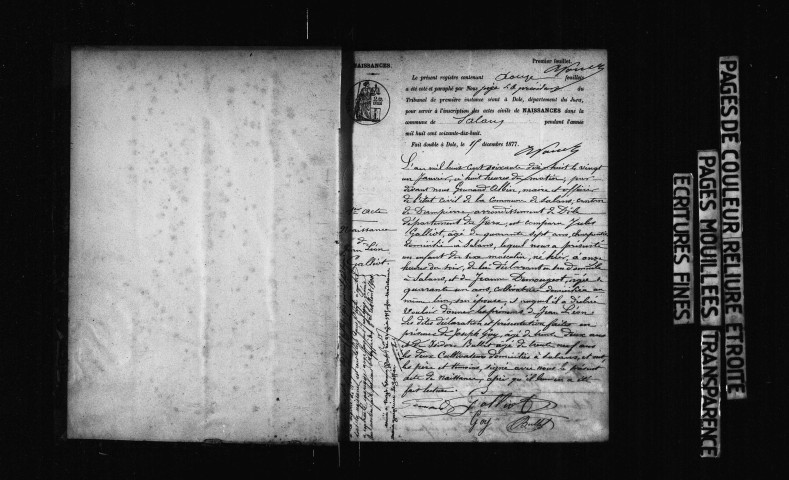 NAISSANCES.
Premier feuillet.
Le présent registre contenant Douze feuillets
a été coté et paraphé par Nous juge du
Tribunal de première instance séant à Dole, département du Jura,
pour servir à l'inscription des actes civils de NAISSANCES dans la
commune de Salans pendant l'année
mil huit cent soixante-dix-huit.
Fait double à Dole, le 15 décembre 1877.
L'an mil huit cent soixante dix huit le vingt
un Janvier, à huit heures du matin, par
devant nous Albin, maire et officier
de l'état civil de la commune de Salans, canton
de Dampierre, arrondissement de Dole
département du Jura, est comparu Jules
Galliot, âgé de quarante sept ans, charpentier
domicilié à Salans, lequel nous a présenté
un enfant du sexe masculin, né hier, à onze
heures du soir, de lui déclarant en son domicile
à Salans, et de Jeanne Demougeot, âgée de
quarante un ans, cultivatrice domiciliée au
même lieu, son épouse, et auquel il a déclaré
vouloir donner les prénoms de Jean Léon
Les dites déclaration et présentation faites en
présence de Joseph Goy, âgé de trente deux ans
et de Isidore Bullet âgé de trente neuf ans
les deux Cultivateurs domiciliés à Salans, et ont
les père et témoins, signé avec nous le présent
acte de naissance, après qu'il leur en a été
fait lecture.
Galliot
Goy Bullet
Acte
Naissance
de
Jean Léon
Galliot
PAGES DE COULEUR RELIURE ETROITE
PAGES MOUILLEES TRANSPARENCE
ECRITURES FINES